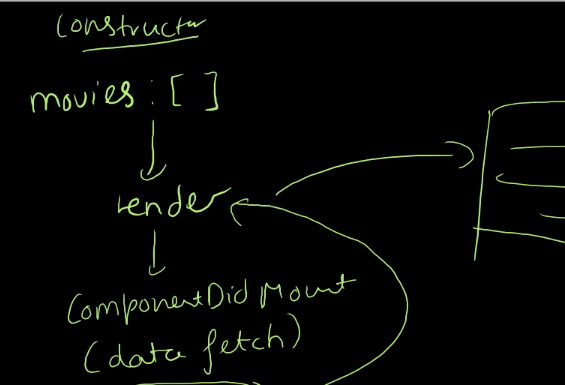 Constructor
movies : [ ]
render
ComponentDidMount
(data fetch)